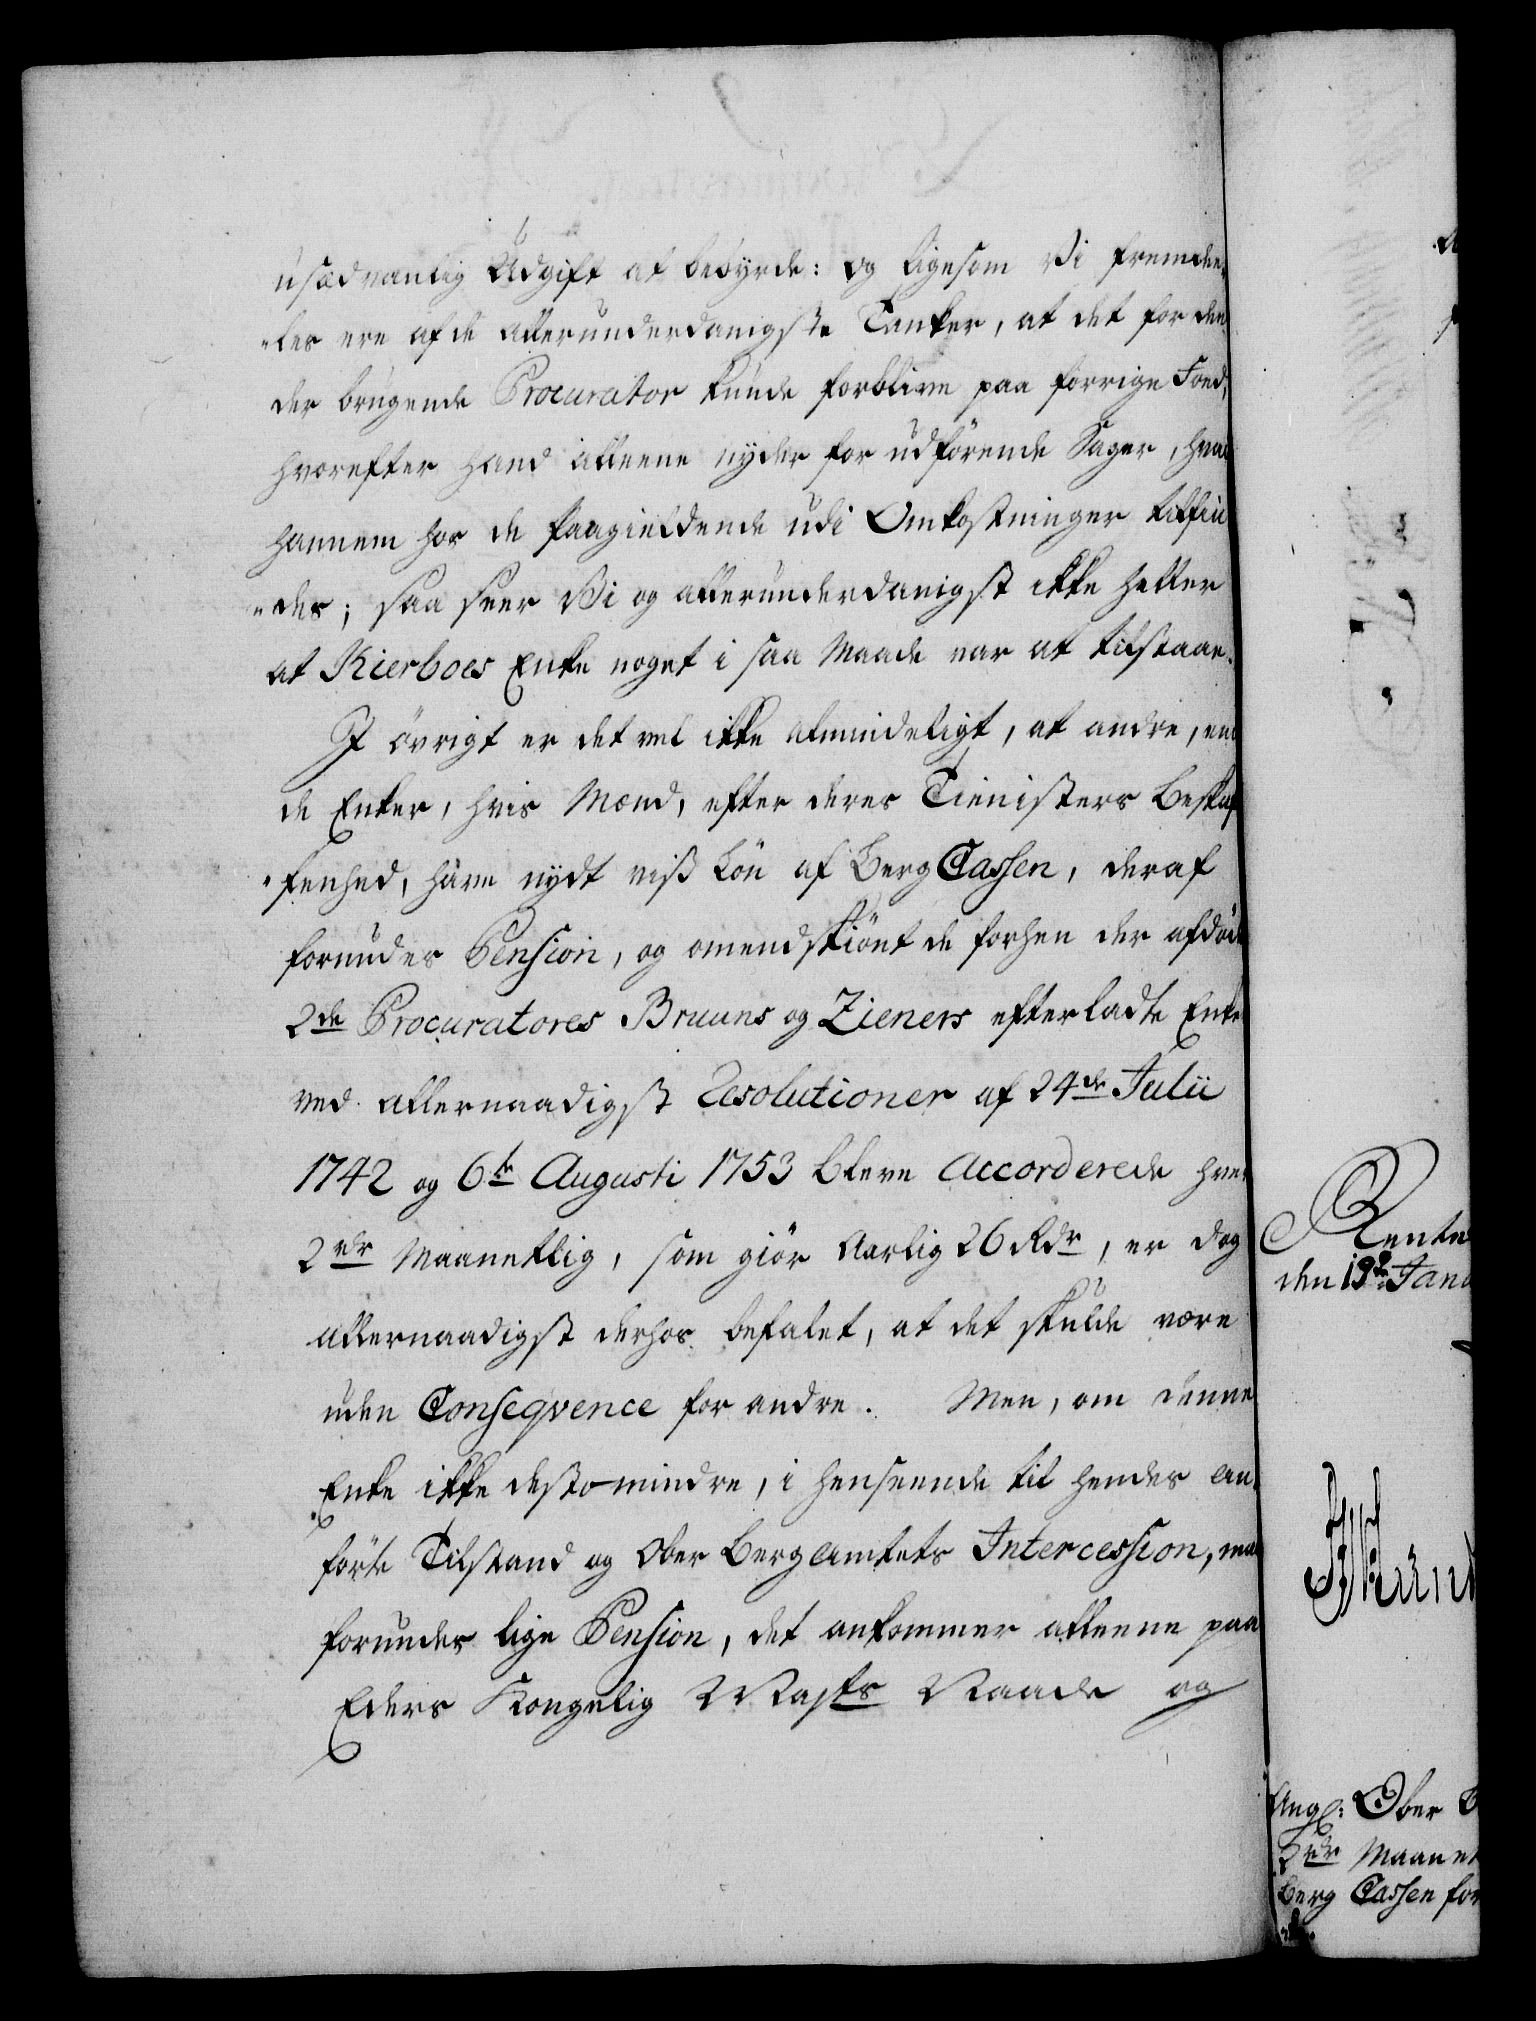 usædvanlig Udgift at bebyrde: og ligesom Vi fremdee¬
"les ere af de allerunderdanigste Tanker, at det for den
der brugende Procurator kunde forblive paa forrige Foed,
hvorefter hand alleene nyder for udførende Sager, hvad
hannem hos de paagieldende udi Omkostninger tilfin
"des; saa seer Vi og allerunderdanigst ikke heller
at Kierboes Enke noget i saa Maade var at tilstaae.
I øvrigt er det vel ikke almindeligt, at andre, end
de Enker, hvis Mænd, efter deres Tienisters Beskaf
"fenhed, have nydt viss Løn af Berg Cassen, deraf
forundes Pension, og omendskiønt de forhen der afdøde
2de Procuratores Bruuns og Zieners efterladte Enker
ved allernaadigst Resolutioner af 24de Julii
1742 og 6te Augusti 1753 bleve Accorderede hver
2rdr Maanetlig, som giør Aarlig 26 Rdr, er dog
allernaadigst derhos befalet, at det skulde være
uden Conseqvence for andre. Men, om denne
Enke ikke desto mindre, i henseende til hendes an¬
førte Tilstand og Ober Berg Amtets Intercession, maa
forundes lige Pension, det ankommer alleene paa
Eders Kongelig Mayts Naade og
Rente
den 18de Janu
Ang: Ober B
2rdr Maanet
Berg Cassen for